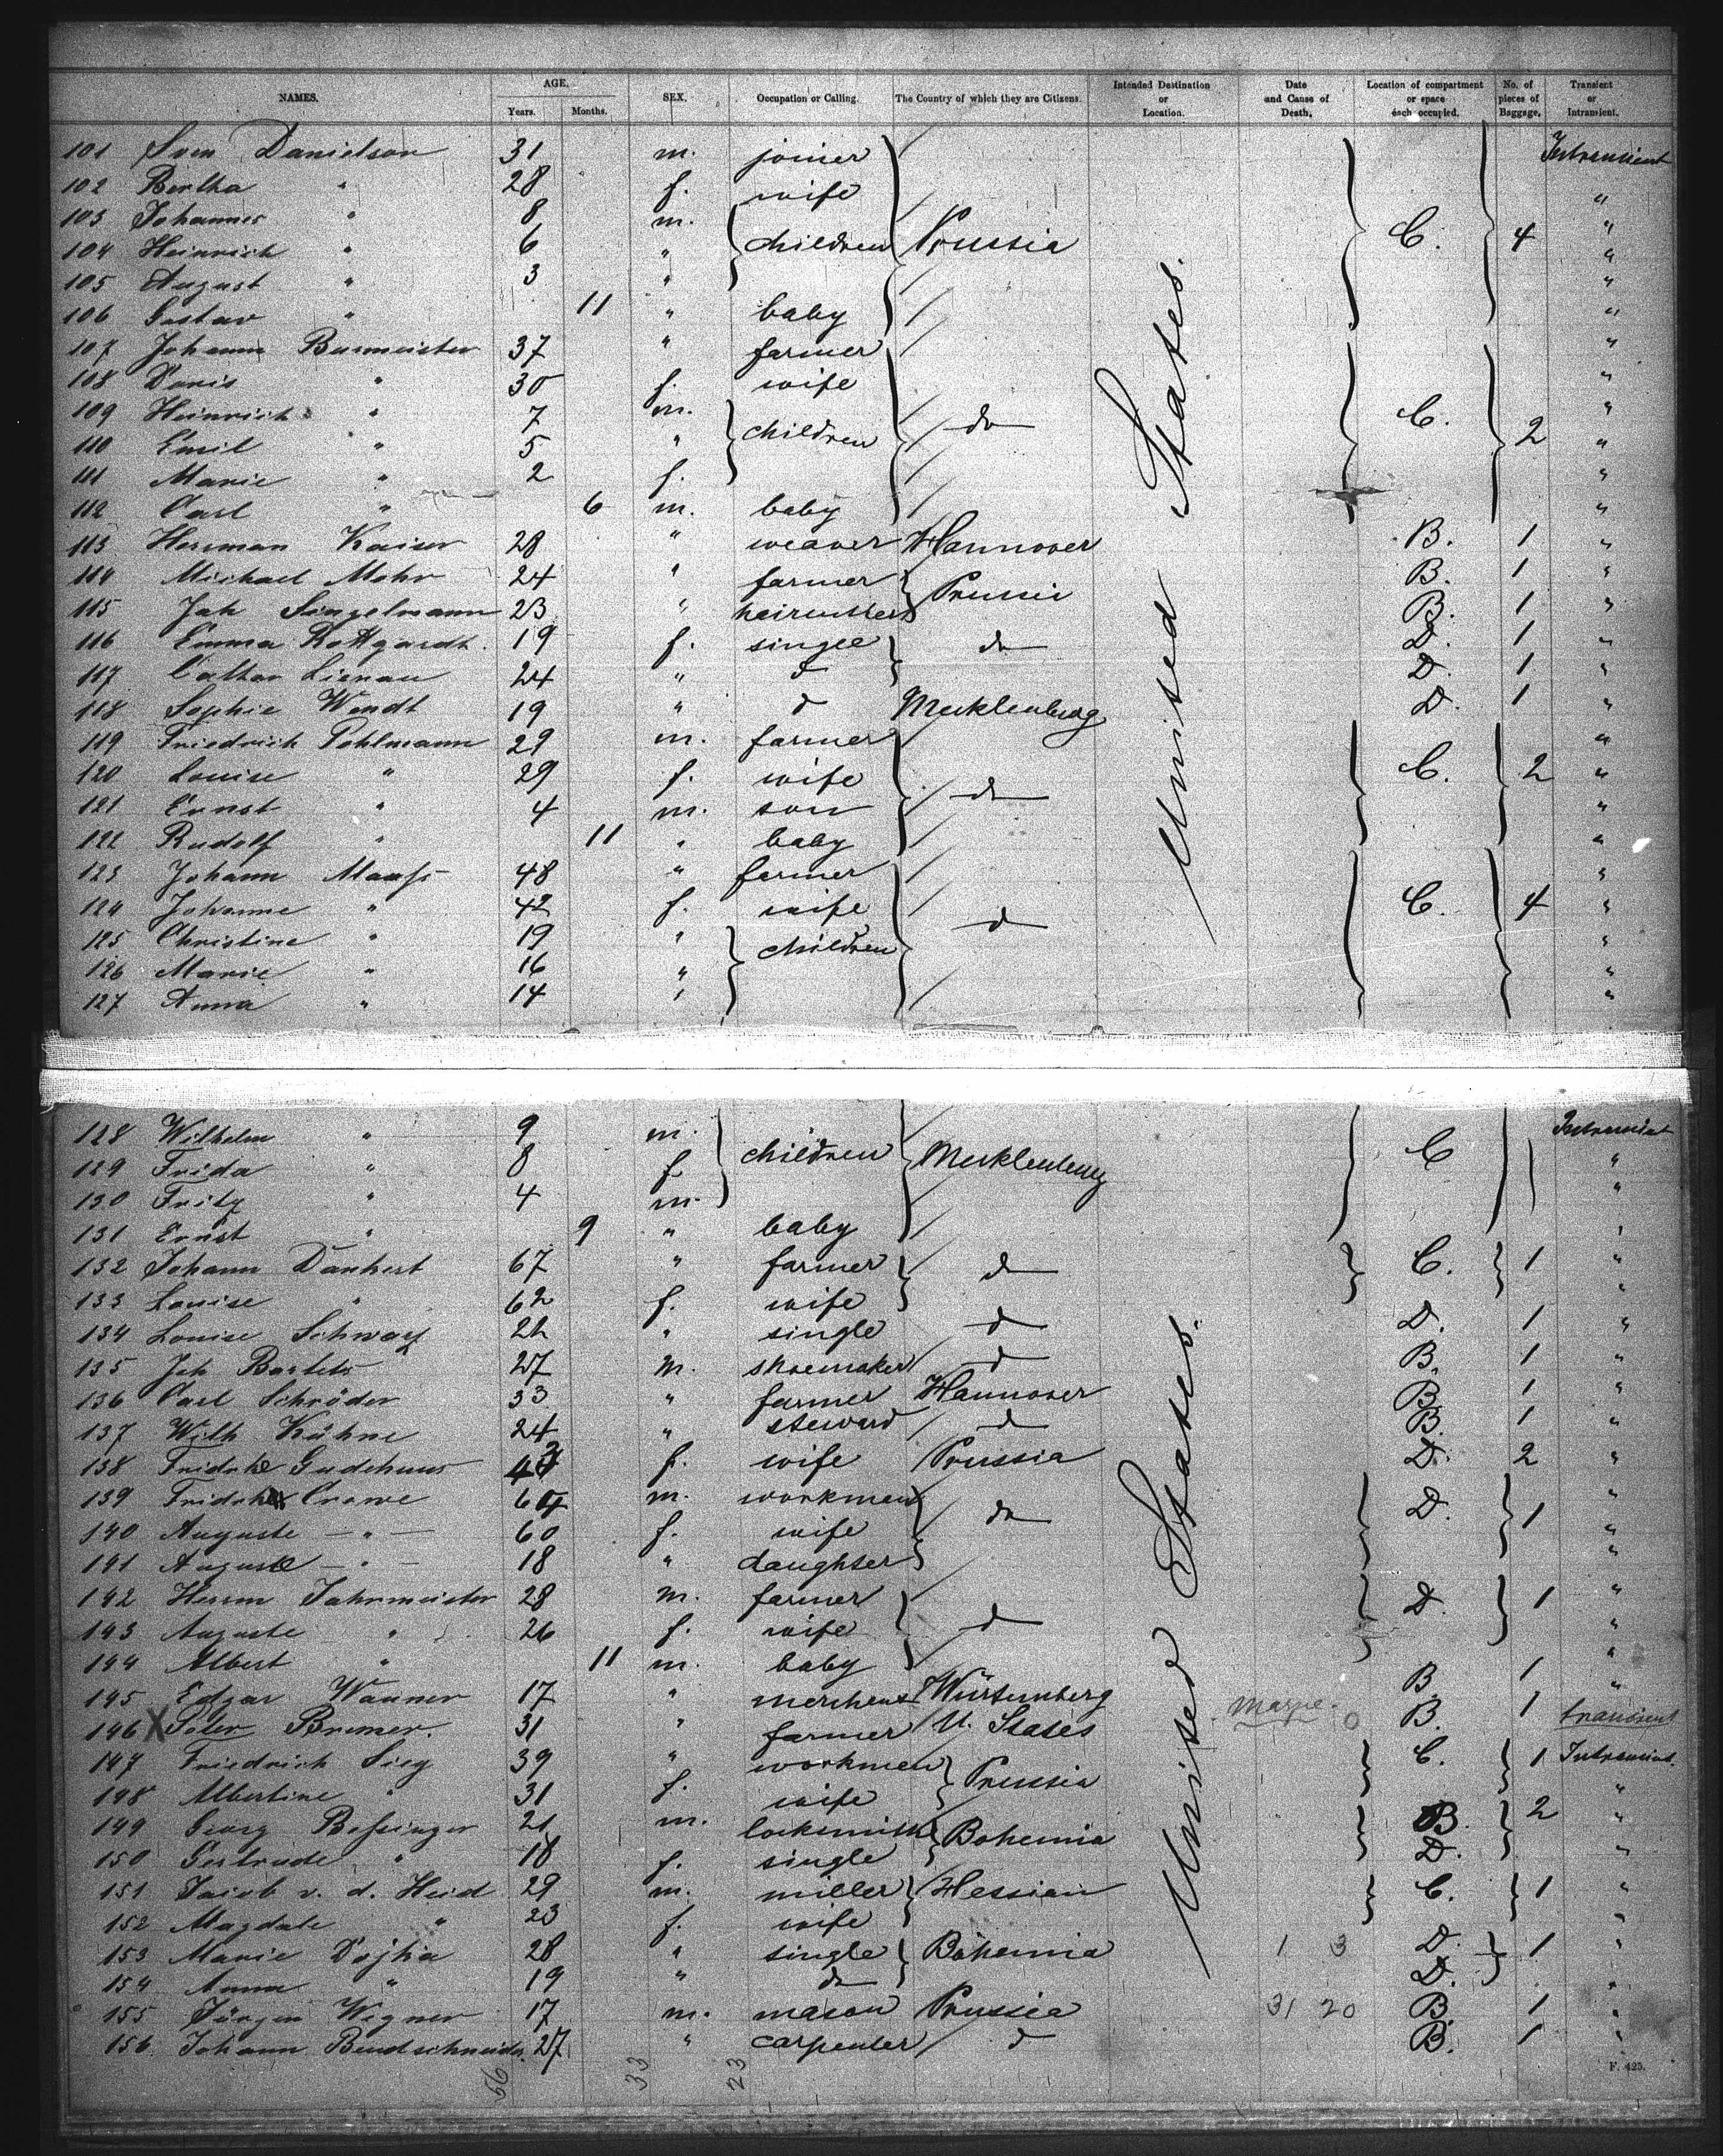 NAMES. AGE. Years. Months. SEX. Occupation or Calling. The Country of which they are Citizens. Intended Destination or Location. Date and Cause of Death. Location of compartment or space each occupied. No. of pieces of Baggage. Transient or Intransient.
101 Sven Danielson 31 m. joiner Intransient
102 Bertha " 28 f. wife "
103 Johannes " 8 m. "
104 Heinrich " 6 " children Prussia C. 4 "
105 August " 3 " "
106 Gustav " 11 " baby "
107 Johann Burmeister 37 " farmer "
108 Doris " 30 f. wife "
109 Heinrich " 7 m. do C. "
110 Emil " 5 " children 2 "
111 Marie " 2 f. "
112 Carl " 6 m. baby "
113 Herman Kaiser 28 " weaver Hannover B. 1 "
114 Michael Mohr 24 " farmer Prussia B. 1 "
115 Joh Singelmann 23 " haircutter B. 1 "
116 Emma Rottgardt. 19 f. single do D. 1 "
117 Cathar Lienau 24 " d D. 1 "
118 Sophie Wendt 19 " d Mecklenburg D. 1 "
119 Friedrich Pohlmann 29 m. farmer "
120 Louise " 29 f. wife do C. 2 "
121 Ernst " 4 m. son "
122 Rudolf " 11 " baby "
123 Johann Maass 48 " farmer "
124 Johanne " 42 f. wife d C. 4 "
125 Christine " 19 " children "
126 Marie " 16 " "
127 Anna " 14 " "
United States.
128 Wilhelm " 9 m. Intransient
129 Frida " 8 f. children Mecklenburg C "
130 Fritz " 4 m. "
131 Ernst " 9 " baby "
132 Johann Dankert 67 " farmer do C. 1 "
133 Louise " 62 f. wife "
134 Louise Schwarz 22 " single d D. 1 "
135 Joh Bartels 27 m. shoemaker d B. 1 "
136 Carl Schröder 33 " farmer Hannover B. 1 "
137 Wilh Kühne 24 " steward d B. 1 "
138 Fridrke Gudehuus f. wife Prussia D. 2 "
139 Fridrke Crowe 64 m. workman do D. 1 "
140 Auguste — " — 60 f. wife "
141 Auguste — " — 18 " daughter "
142 Herm Fahrmeister 28 m. farmer d D. 1 "
143 Auguste " 26 f. wife "
144 Albert " 11 m. baby "
145 Edgar Wanner 17 " merchant Würtemberg B. 1 "
146 X Peter Bremer. 31 " farmer U. States 0 B. 1 transient
147 Friedrich Sieg 39 " workmen Prussia C. 1 Intransient.
148 Albertine " 31 f. wife "
149 Georg Bessinger 21 m. locksmith Bohemia B. 2 "
150 Gertrude " 18 f. single D. "
151 Jacob v. d. Heid 29 m. miller Hessian C. 1 "
152 Magdale " 23 f. wife "
153 Marie Dojka 28 " single Bohemia 1 3 D. 1 "
154 Anna " 19 " do D. "
155 Jürgen Wegner 17 m. mason Prussia 31 20 B. 1 "
156 Johann Bendschneider 27 " carpenter d B. 1 "
United States.
56 33 23
F. 425.